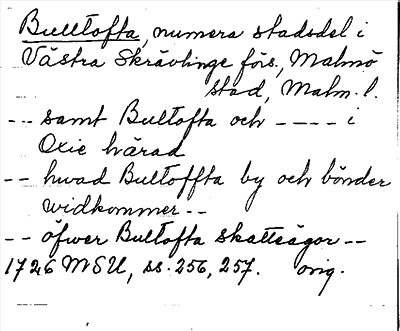 Bulltofta, numera stadsdel i
Västra Skrävlinge förs., Malmö
stad, Malm. l.
-- samt Bultofta och ---- i
Oxie härad
-- hwad Bultoffta by och bönder
widkommer --
-- öfwer Bultofta skattsägor --
1726 MSU, ss. 256, 257. orig.